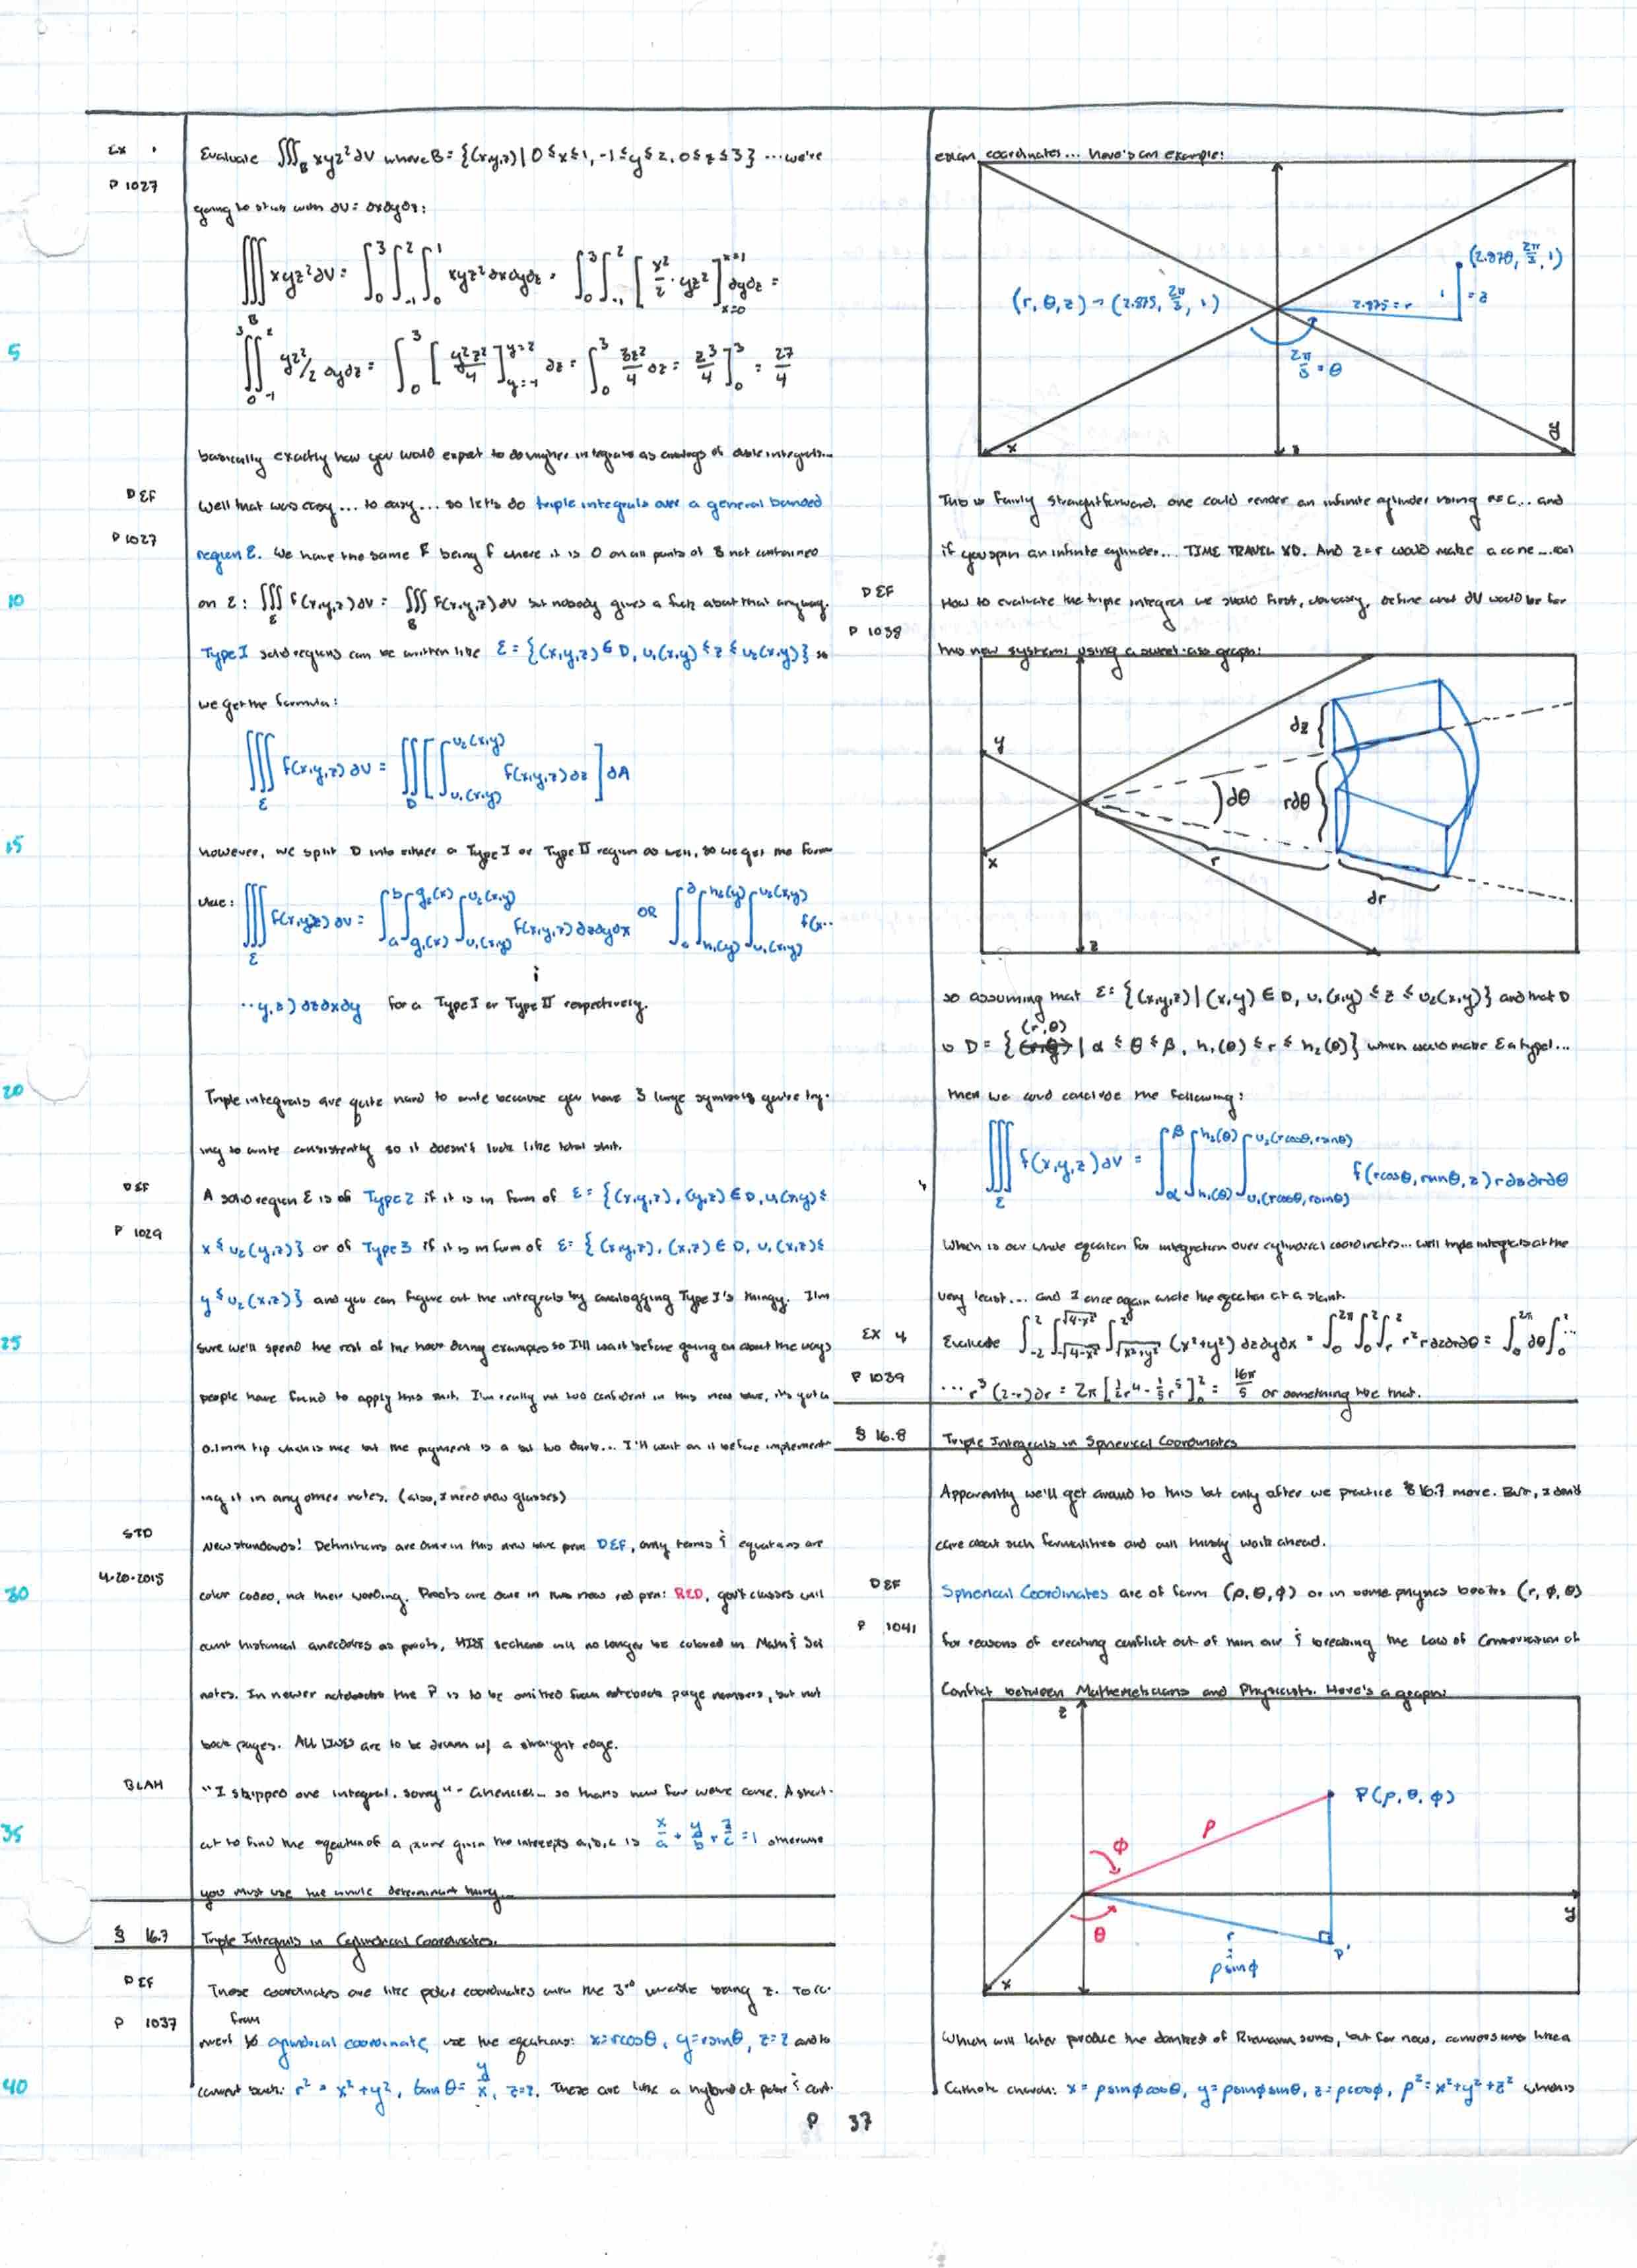 EX 1
P 1027
Evaluate ∭_B xyz² dV where B = {(x,y,z) | 0 ≤ x ≤ 1, -1 ≤ y ≤ 2, 0 ≤ z ≤ 3} ... we're
going to start with dV = dxdydz:
∭_B xyz² dV = ∫₀³ ∫₋₁² ∫₀¹ xyz² dxdydz = ∫₀³ ∫₋₁² [x²/2 · yz²]_{x=0}^{x=1} dydz =
5
∫₀³ ∫₋₁² yz²/2 dydz = ∫₀³ [y²z²/4]_{y=-1}^{y=2} dz = ∫₀³ 3z²/4 dz = z³/4 ]₀³ = 27/4
basically exactly how you would expect to do higher integrals as analogs of double integrals...
DEF
P 1027
Well that was easy... to easy... so let's do triple integrals over a general bounded
region E. We have the same F being f where it is 0 on all points of B not contained
10
on E: ∭_E f(x,y,z) dV = ∭_B F(x,y,z) dV but nobody gives a fuck about that anyway.
Type I solid regions can be written like E = {(x,y,z) ∈ D, u₁(x,y) ≤ z ≤ u₂(x,y)} so
we get the formula:
∭_E f(x,y,z) dV = ∬_D [∫_{u₁(x,y)}^{u₂(x,y)} f(x,y,z) dz] dA
15
however, we split D into either a Type I or Type II region as well, so we get the form
∭_E f(x,y,z) dV = ∫_a^b ∫_{g₁(x)}^{g₂(x)} ∫_{u₁(x,y)}^{u₂(x,y)} f(x,y,z) dzdydx OR ∫_c^d ∫_{h₁(y)}^{h₂(y)} ∫_{u₁(x,y)}^{u₂(x,y)} f(x...
...y,z) dzdxdy for a Type I or Type II respectively.
20
Triple integrals are quite hard to write because you have 3 large symbols you're try-
ing to write consistently so it doesn't look like total shit.
DEF
P 1029
A solid region E is of Type 2 if it is in form of E = {(x,y,z), (y,z) ∈ D, u₁(y,z) ≤
x ≤ u₂(y,z)} or of Type 3 if it is in form of E = {(x,y,z), (x,z) ∈ D, u₁(x,z) ≤
y ≤ u₂(x,z)} and you can figure out the integrals by analogging Type I's thingy. I'm
25
sure we'll spend the rest of the hour doing examples so I'll wait before going on about the ways
people have found to apply this shit. I'm really not too confident in this new blue, it's got a
0.1mm tip which is nice but the pigment is a bit too dark... I'll wait on it before implement-
ing it in any other notes. (also, I need new glasses)
STD
4-20-2015
New standards! Definitions are done in this new blue pen DEF, only terms & equations are
30
color coded, not their wording. Proofs are done in this new red pen: RED, gov't classes will
count historical anecdotes as proofs, HIST sections will no longer be colored in Math & Sci
notes. In newer notebooks the P is to be omitted from notebook page numbers, but not
book pages. ALL LINES are to be drawn w/ a straight edge.
BLAH
"I skipped one integral, sorry" - so that's how far we've come. A short-
35
cut to find the equation of a plane given the intercepts a,b,c is x/a + y/b + z/c = 1 otherwise
you must use the whole determinant thing...
§ 16.7
Triple Integrals in Cylindrical Coordinates.
DEF
P 1037
These coordinates are like polar coordinates with the 3rd variable being z. To co-
from
nvert to cylindrical coordinate, use the equations: x=rcosθ, y=rsinθ, z=z and to
40
convert back: r² = x²+y², tanθ = y/x, z=z. These are like a hybrid of polar & cart-
esian coordinates... here's an example:
(r,θ,z) → (2.875, 2π/3, 1)
(2.870, 2π/3, 1)
2.875 = r
1 = z
2π/3 = θ
x
z
y
This is fairly straightforward, one could render an infinite cylinder using r=c... and
if you spin an infinite cylinder... TIME TRAVEL XD. And z=r would make a cone... cool
DEF
P 1038
How to evaluate the triple integral we should first, define what dV would be for
this new system: using a sweet-ass graph:
y
x
z
dz
dθ
rdθ
r
dr
so assuming that E = {(x,y,z) | (x,y) ∈ D, u₁(x,y) ≤ z ≤ u₂(x,y)} and that D
(r,θ)
is D = { | α ≤ θ ≤ β, h₁(θ) ≤ r ≤ h₂(θ)} which would make E a type I...
then we could conclude the following:
∭_E f(x,y,z) dV = ∫_α^β ∫_{h₁(θ)}^{h₂(θ)} ∫_{u₁(rcosθ,rsinθ)}^{u₂(rcosθ,rsinθ)} f(rcosθ,rsinθ,z) r dzdrdθ
Which is our whole equation for integration over cylindrical coordinates... well triple integrals at the
very least... and I once again wrote the equation at a slant.
EX 4
P 1039
Evaluate ∫₋₂² ∫_{-√(4-x²)}^{√(4-x²)} ∫_{√(x²+y²)}^2 (x²+y²) dzdydx = ∫₀^{2π} ∫₀² ∫_r² r² r dzdrdθ = ∫₀^{2π} dθ ∫₀² ...
... r³(2-r)dr = 2π[½r⁴ - ⅕r⁵]₀² = 16π/5 or something like that.
§ 16.8
Triple Integrals in Spherical Coordinates
Apparently we'll get around to this but only after we practice § 16.7 more. But, I don't
care about such formalities and will work ahead.
DEF
P 1041
Spherical Coordinates are of form (ρ,θ,φ) or in some physics books (r,φ,θ)
for reasons of creating conflict out of thin air & breaking the Law of Conservation of
Conflict between Mathematicians and Physicists. Here's a graph:
z
P(ρ,θ,φ)
ρ
φ
θ
r
ρsinφ
P'
x
y
Which will later produce the of Riemann sums, but for now, conversions
Catholic church: x = ρsinφcosθ, y=ρsinφsinθ, z=ρcosφ, ρ²=x²+y²+z² which is
P 37